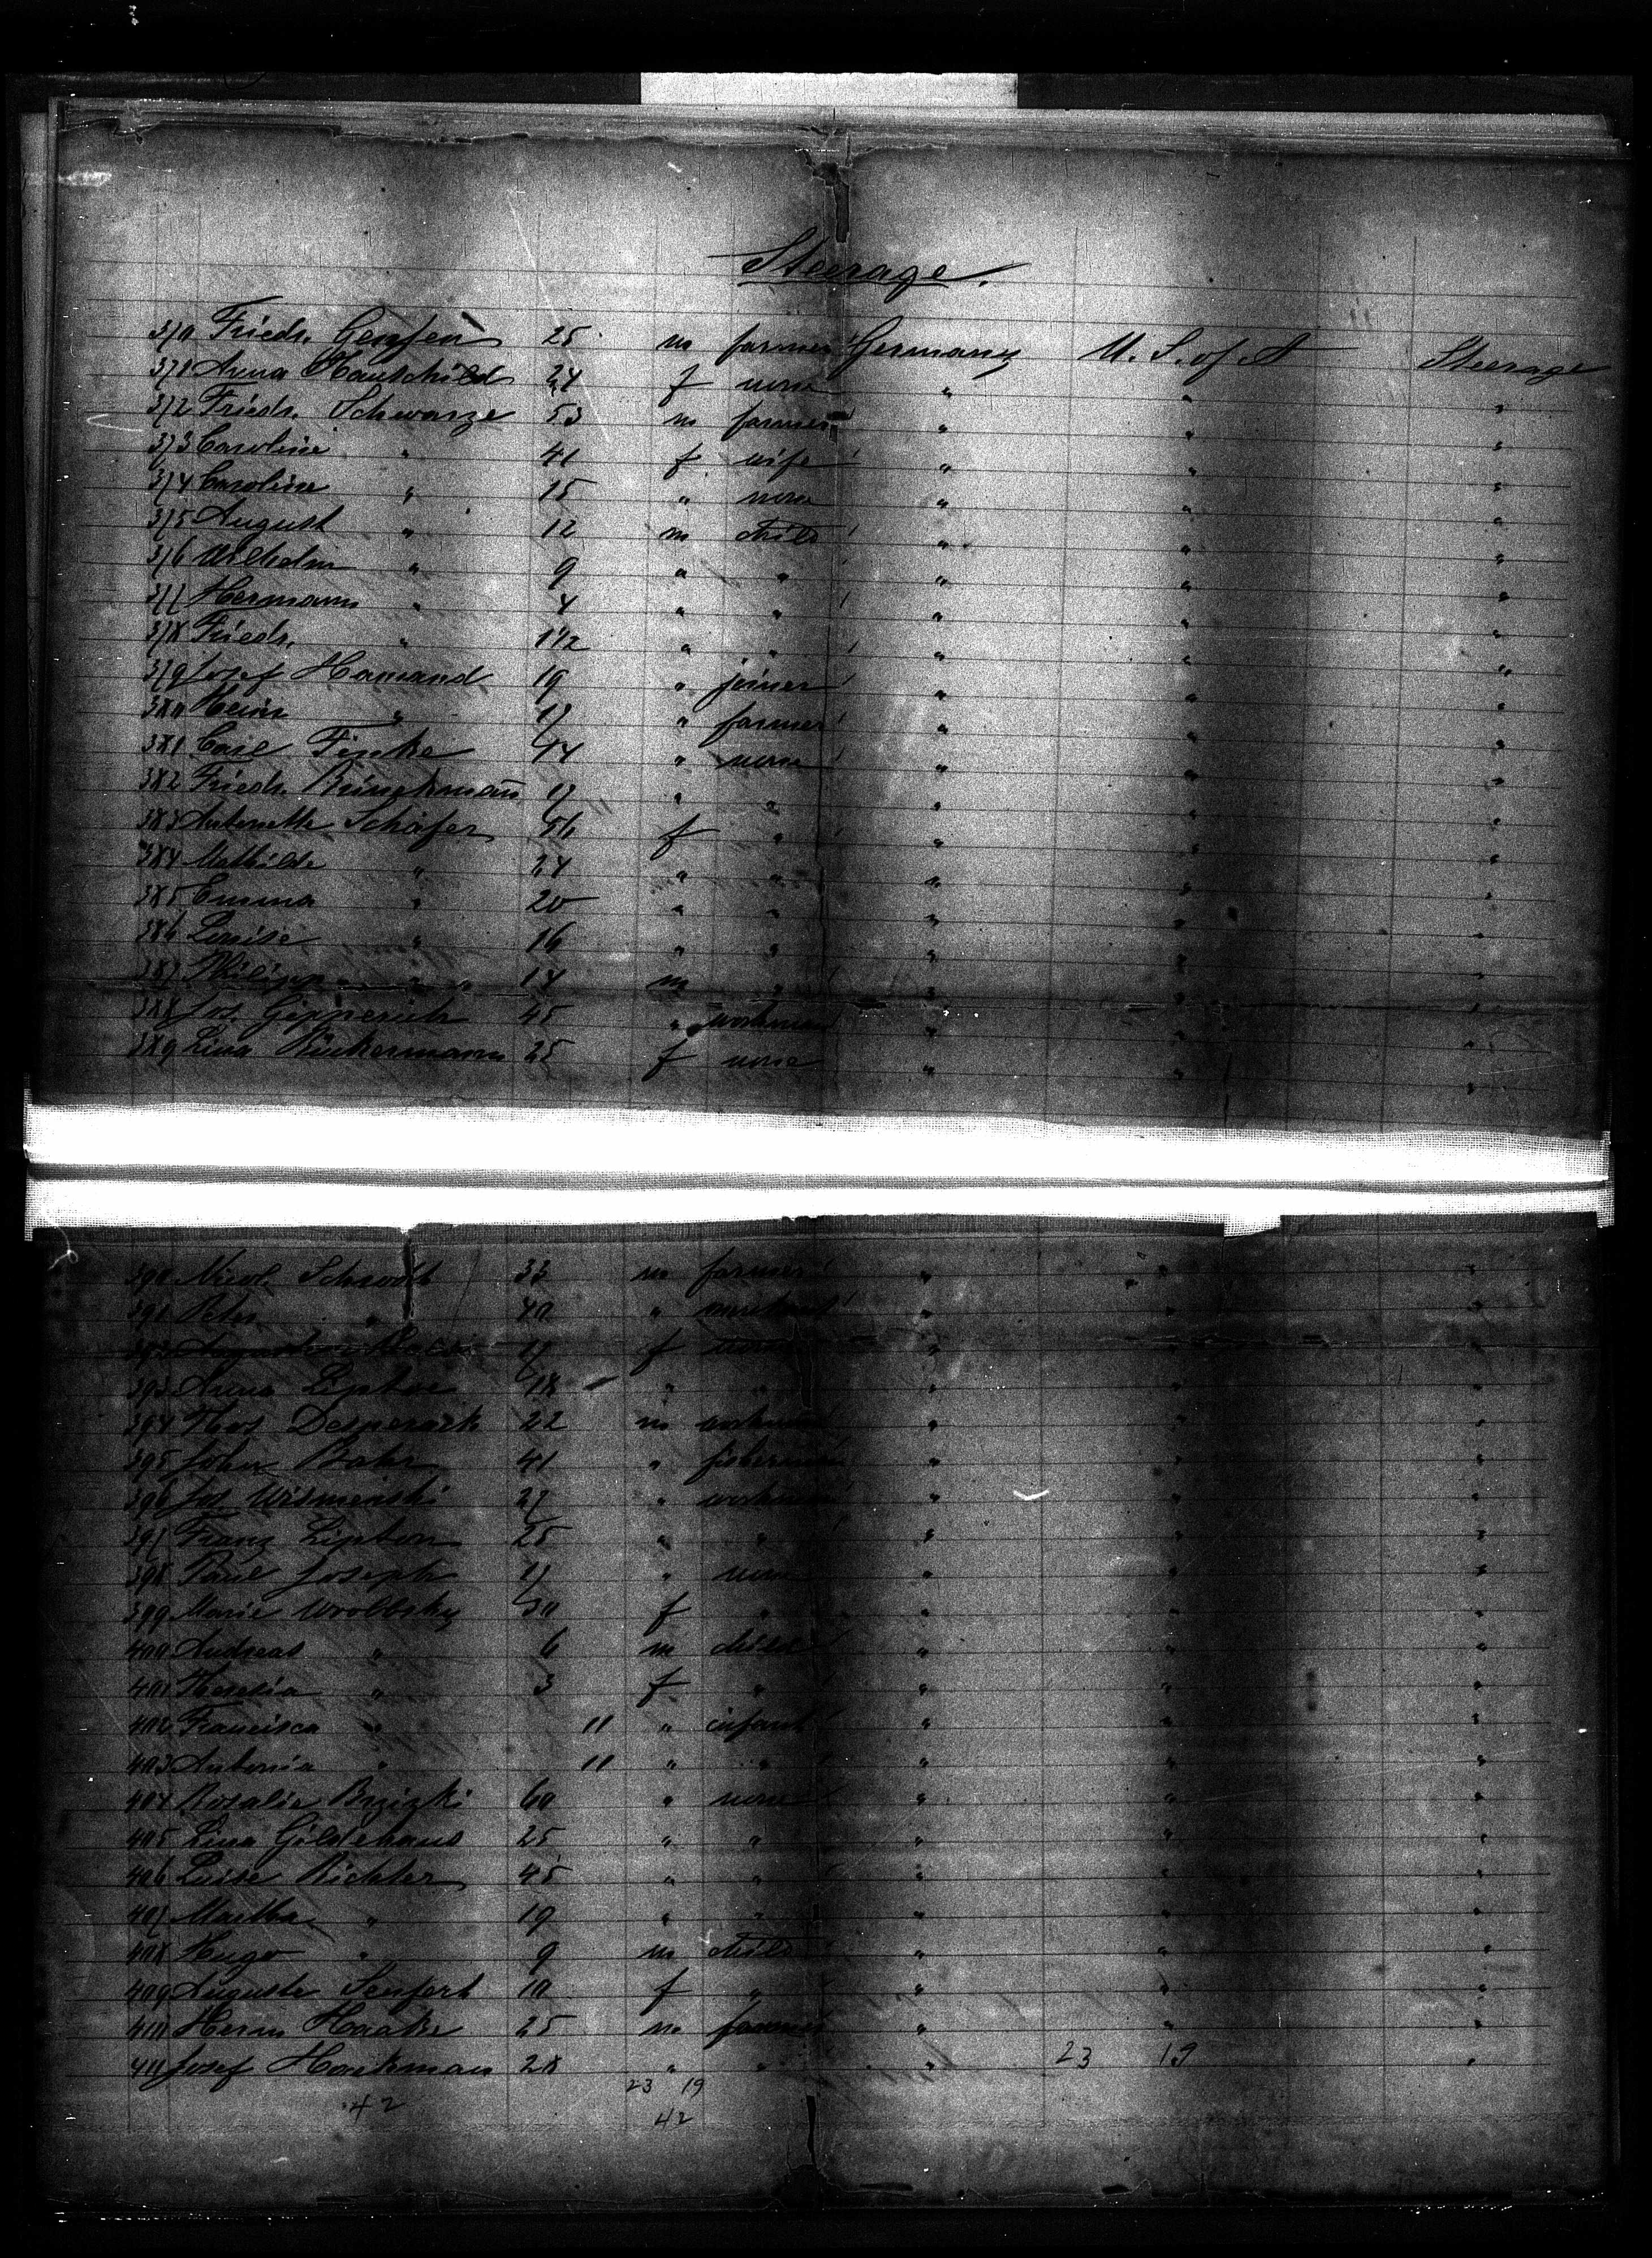 Steerage.
370 Friedr. Gensen 25 m farmer Germany U. S. of A Steerage
371 Anna Hauschild 24 f none " " "
372 Friedr. Schwarze 53 m farmer " " "
373 Caroline " 41 f wife " " "
374 Caroline " 15 " none " " "
375 August " 12 m child " " "
376 Wilhelm " 9 " " " " "
377 Hermann " 4 " " " " "
378 Friedr. " 1 1/2 " " " " "
379 Josef Hamand 19 " joiner " " "
380 Heinr " 17 " farmer " " "
381 Carl Finke 44 " none " " "
382 Friedr. Brinckmann 17 " " " " "
383 Antonette Schäfer 56 f " " " "
384 Mathilde " 24 " " " " "
385 Emma " 20 " " " " "
386 Louise " 16 " " " " "
387 Philipp " 14 m " " " "
388 Jos. Gipperich 45 " workman " " "
389 Lina Böckermann 25 f none " " "
390 Nicol. Schroth 33 m farmer " "
391 Peter " 40 " merchant " "
392 17 f none " " "
393 Anna 18 " " " " "
394 Thos 22 m workman " " "
395 John Bahr 41 " fisherman " " "
396 Jos Wisnienski 27 " workman " " "
397 Franz 25 " " " " "
398 Paul Joseph 17 " none " " "
399 Marie 30 f " " " "
400 Andreas " 6 m child " " "
401 Theresia " 3 f " " " "
402 Francisca " 11 " infant " " "
403 Antonia " 11 " " " " "
404 Rosalie 60 " none " " "
405 Lina Gildehaus 25 " " " " "
406 Luise Richter 45 " " " " "
407 Martha " 19 " " " " "
408 Hugo " 9 m child " " "
409 Auguste Senfert 10 f " " " "
410 Herm Haake 25 m farmer " " "
411 Josef Hackman 28 " " " 23 19 "
23 19
42 42